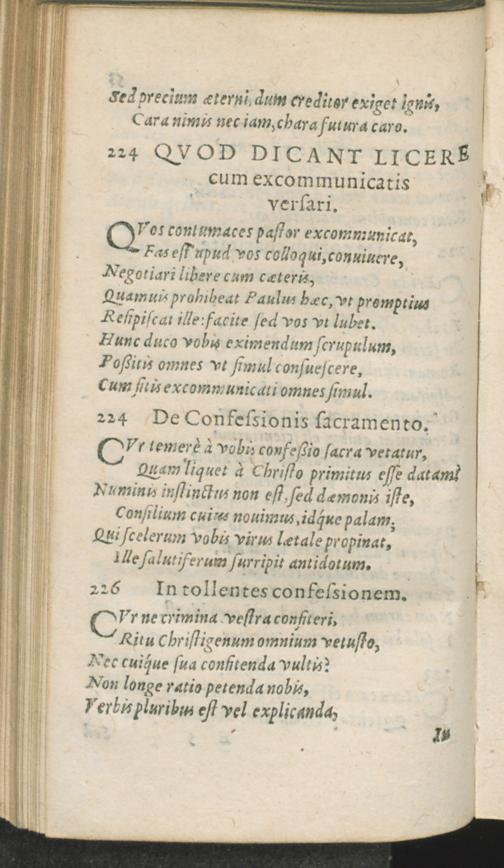 Sed precium æterni, dum creditor exiget ignis,
Cara nimis nec iam, chara futura caro.
224 QVOD DICANT LICERE
cum excommunicatis
versari.
QVos contumaces pastor excommunicat,
Fas est apud vos colloqui, conuiuere,
Negotiari libere cum cæteris,
Quamuis prohibeat Paulus hæc, vt promptius
Resipiscat ille: facite sed vos vt lubet.
Hunc duco vobis eximendum scrupulum,
Possitis omnes vt simul consuescere,
Cum sitis excommunicati omnes simul.
224 De Confessionis sacramento.
CVr temerè à vobis confessio sacra vetatur,
Quam liquet à Christo primitus esse datam?
Numinis instinctus non est, sed dæmonis iste,
Consilium cuius nouimus, idq́ue palam;
Qui scelerum vobis virus lætale propinat,
Ille salutiferum surripit antidotum.
226 In tollentes confessionem.
CVr ne crimina vestra confiteri,
Ritu Christigenum omnium vetusto,
Nec cuiq́ue sua confitenda vultis?
Non longe ratio petenda nobis,
Verbis pluribus est vel explicanda,